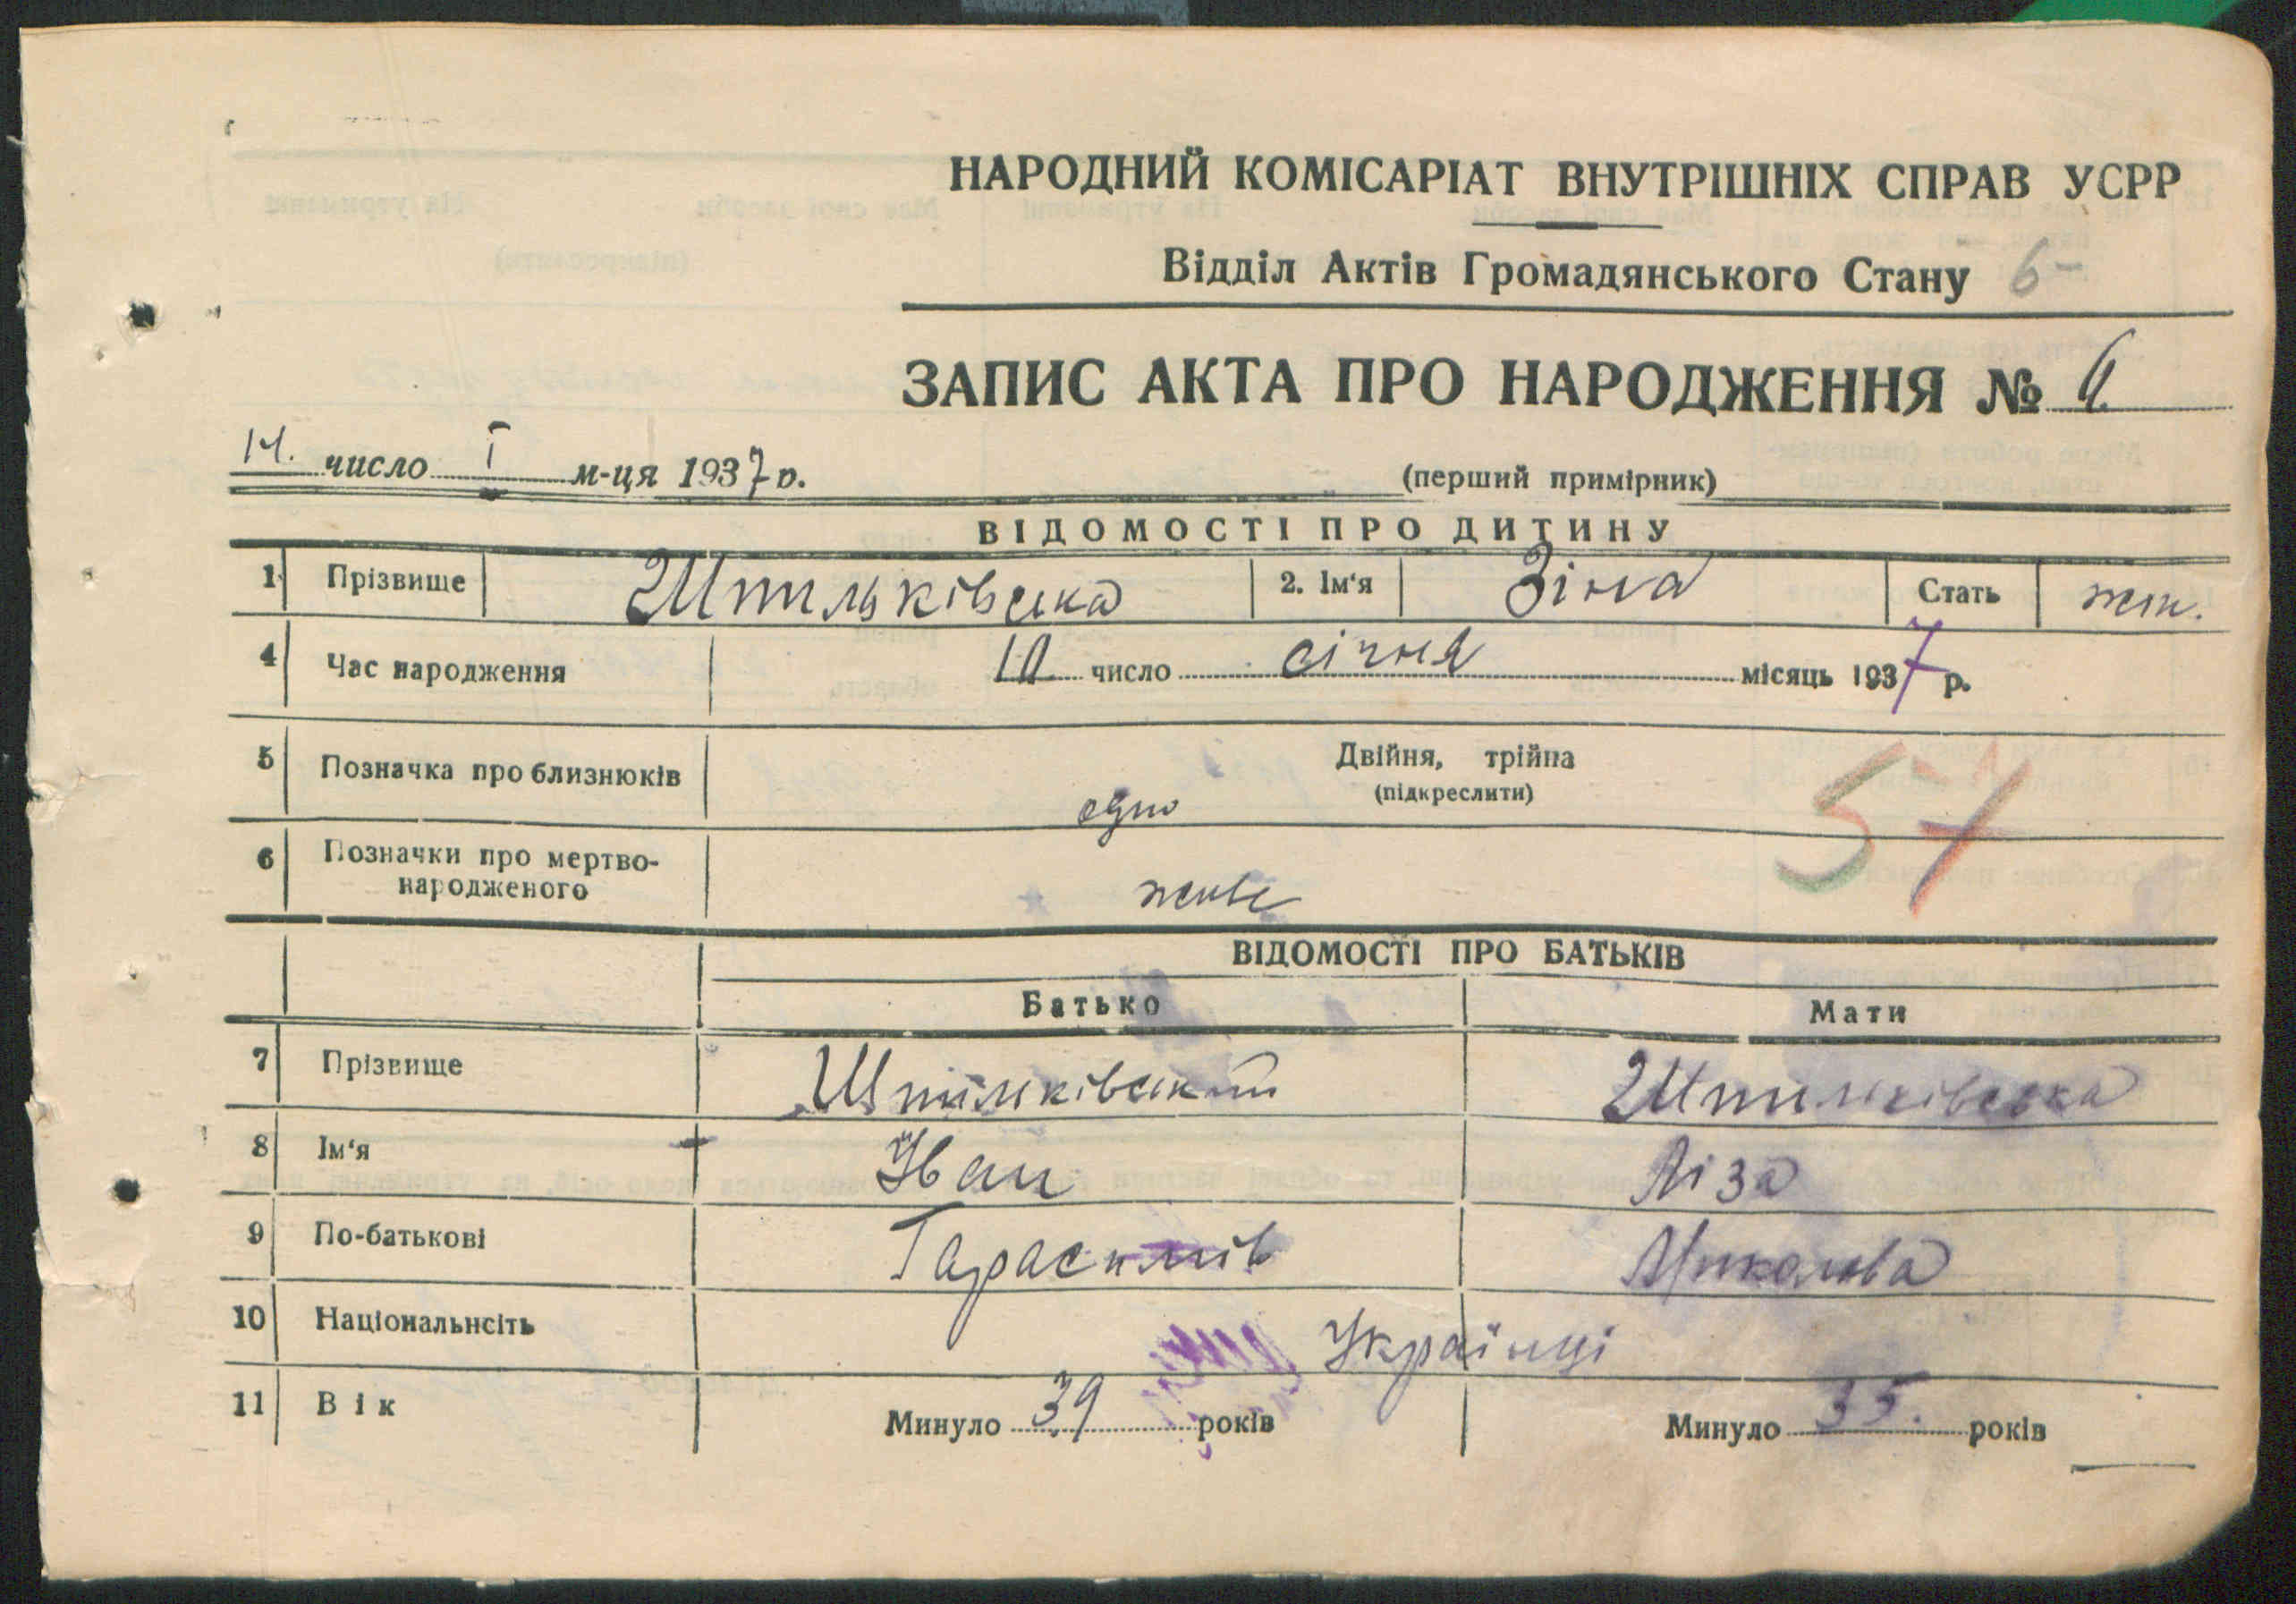 НАРОДНИЙ КОМІСАРІАТ ВНУТРІШНІХ СПРАВ УСРР
Відділ Актів Громадянського Стану 6-
ЗАПИС АКТА ПРО НАРОДЖЕННЯ № 6.
14. число I м-ця 1937 р. (перший примірник)
ВІДОМОСТІ ПРО ДИТИНУ
1 Прізвище Шпильківська 2. Ім'я Зіна Стать жін.
4 Час народження 10 число січня місяць 1937 р.
5 Позначка про близнюків одно Двійня, трійпа
(підкреслити)
57
6 Позначки про мертво-
народженого живе
ВІДОМОСТІ ПРО БАТЬКІВ
Батько Мати
7 Прізвище Шпильківський Шпильківська
8 Ім'я Иван Ліза
9 По-батькові Гарасимів Миколова
10 Національнсіть Українці
11 Вік Минуло 39 років Минуло 35. років